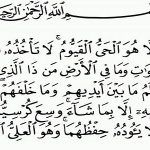 اللَّهِ الرَّحْمَٰنِ الرَّحِيـ
لَّا هُوَ الْحَيُّ الْقَيُّومُ ۚ لَا تَأْخُذُهُ
وَاتِ وَمَا فِي الْأَرْضِ مَن ذَا الَّذِي
مَا بَيْنَ أَيْدِيهِمْ وَمَا خَلْفَهُمْ
ـهِ إِلَّا بِمَا شَاءَ ۚ وَسِعَ كُرْسِيُّـ
لَا يَئُودُهُ حِفْظُهُمَا وَهُوَ الْعَلِيُّ